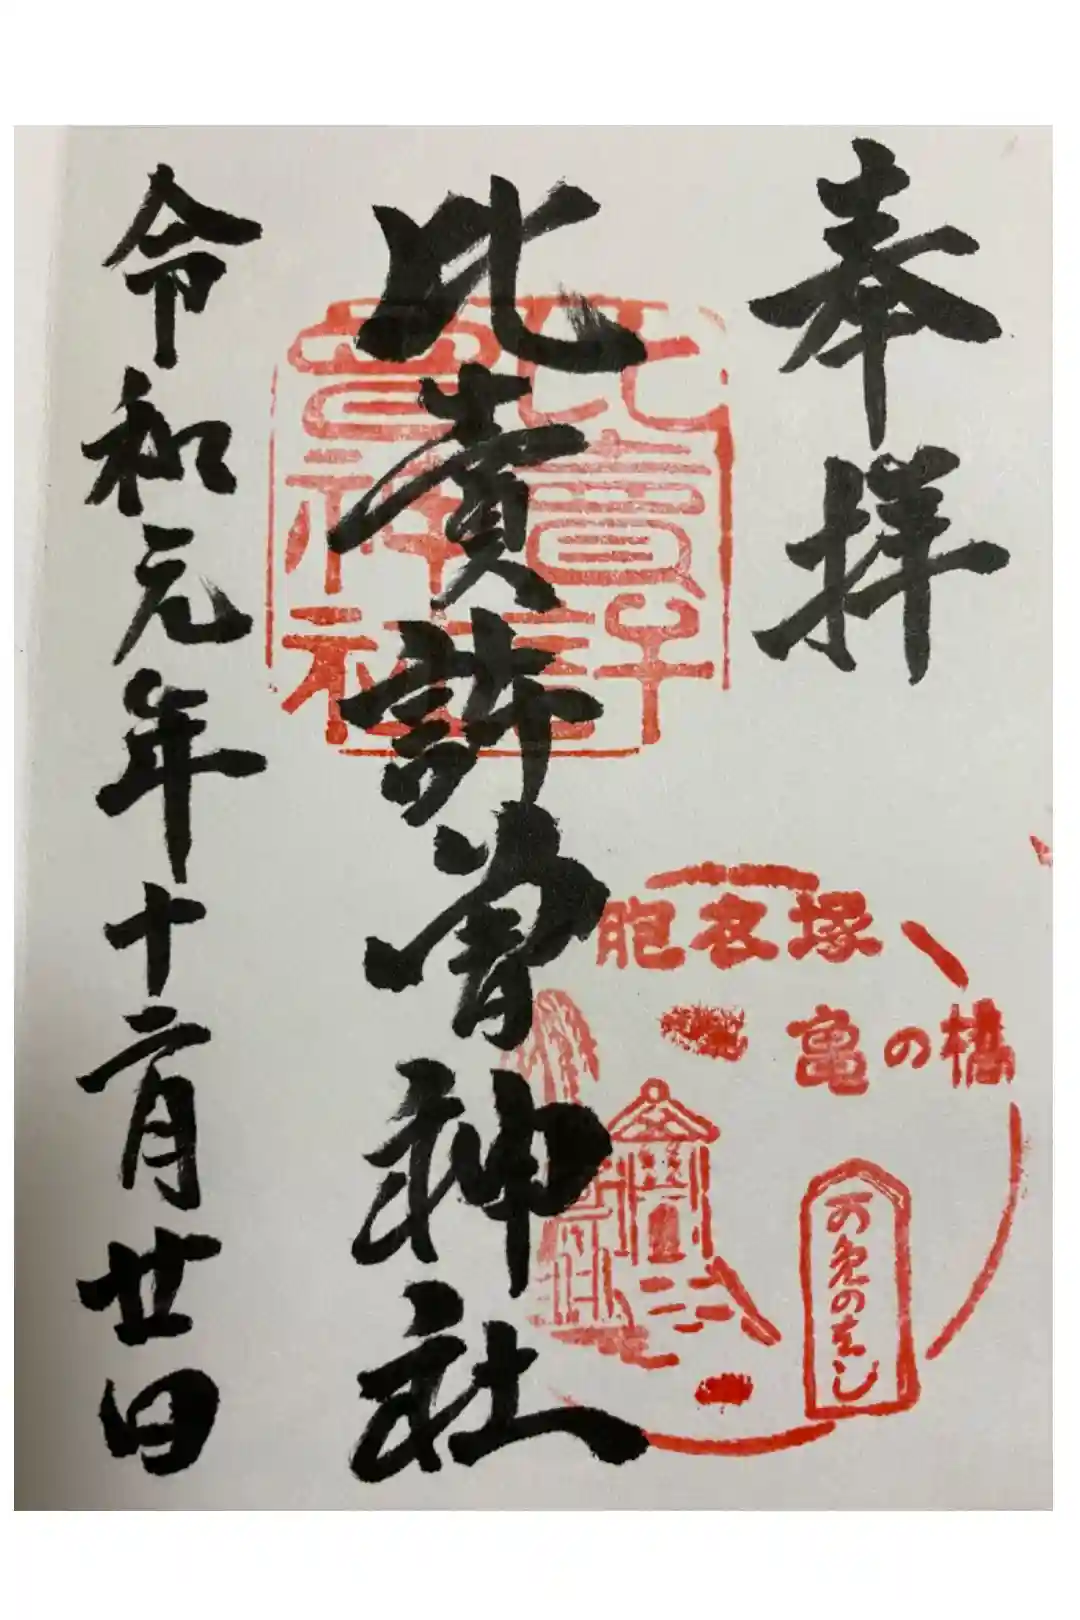 奉拝
比賣許曽神社
比賣許
曽神社
令和元年十二月廿日
胞衣塚
亀の橋